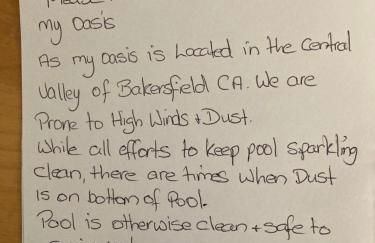 my Oasis
As my oasis is Located in the Central
Valley of Bakersfield CA. We are
Prone to High Winds + Dust.
While all efforts to keep pool sparkling
clean, there are times when Dust
is on bottom of Pool.
Pool is otherwise clean + safe to